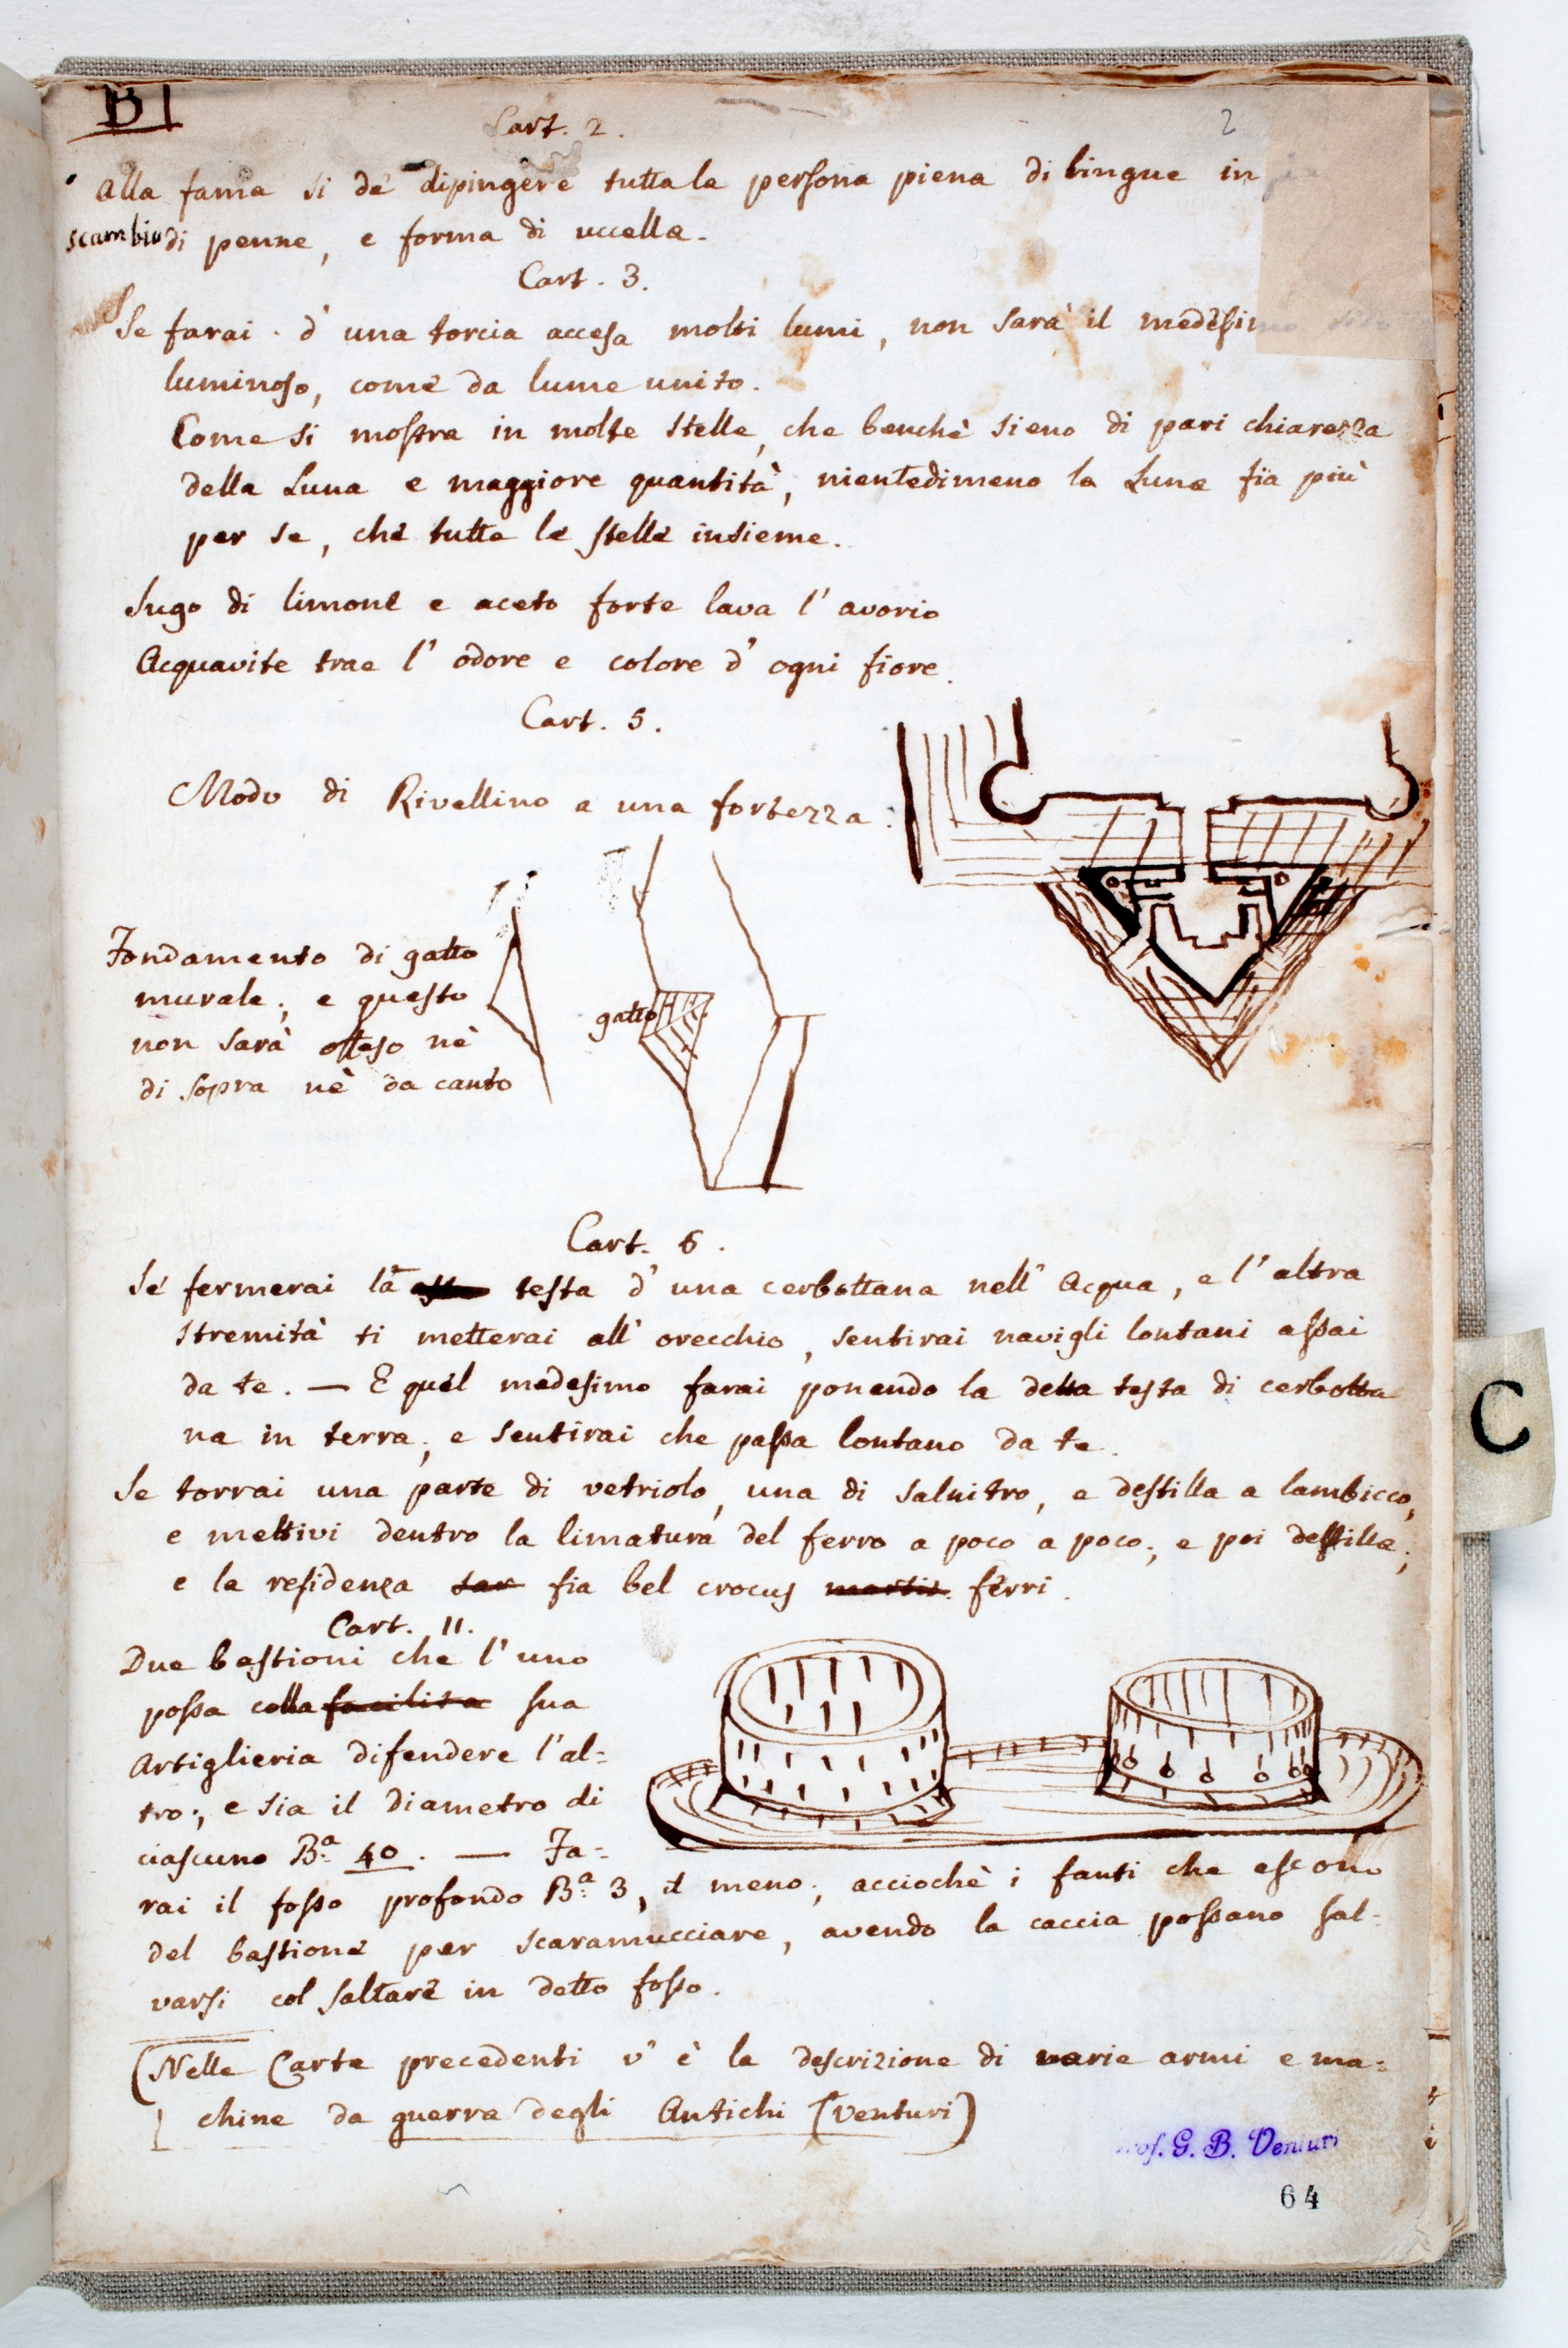 B
Cart. 2.
2
Alla fama si de' dipingere tutta la persona piena di lingue in
scambio di penne, e forma di uccello.
Cart. 3.
Se farai d' una torcia accesa molti lumi, non sarà il medesimo
luminoso, come da lume unito.
Come si mostra in molte stelle, che benchè sieno di pari chiarezza
della Luna e maggiore quantità, nientedimeno la Luna fia più
per se, che tutte le stelle insieme.
Sugo di limone e aceto forte lava l' avorio
Acquavite trae l' odore e colore d' ogni fiore.
Cart. 5.
Modo di Rivellino a una fortezza:
Fondamento di gatto
murale; e questo
non sarà offeso nè
di sopra nè da canto
gatto
Cart. 6.
Se fermerai la testa d' una cerbottana nell' Acqua, e l' altra
stremità ti metterai all' orecchio, sentirai navigli lontani assai
da te. — E quel medesimo farai ponendo la detta testa di cerbotta
na in terra; e sentirai che passa lontano da te.
Se torrai una parte di vetriolo, una di salnitro, e destilla a lambicco,
e mettivi dentro la limatura del ferro a poco a poco; e poi destilla;
e la residenza sar fia bel crocus martis ferri.
Cart. 11.
Due bastioni che l' uno
possa colla facilita sua
Artiglieria difendere l' al=
tro; e sia il diametro di
ciascuno B.ª 40. — Fa=
rai il fosso profondo B.ª 3, il meno; acciochè i fanti che escono
del bastione per scaramucciare, avendo la caccia possano sal=
varsi col saltare in detto fosso.
(Nelle Carte precedenti v' è la descrizione di varie armi e ma=
chine da guerra degli Antichi (Venturi)
C
Prof. G. B. Venturi
64